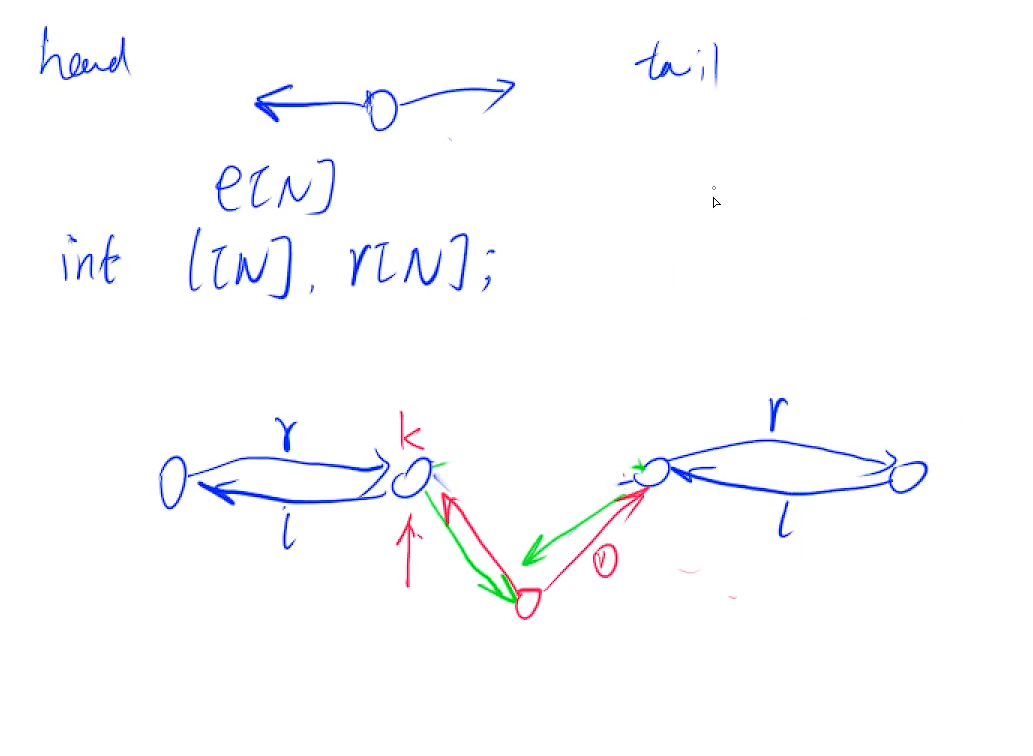 head tail
e[N]
int l[N], r[N];
r k r
l l
①